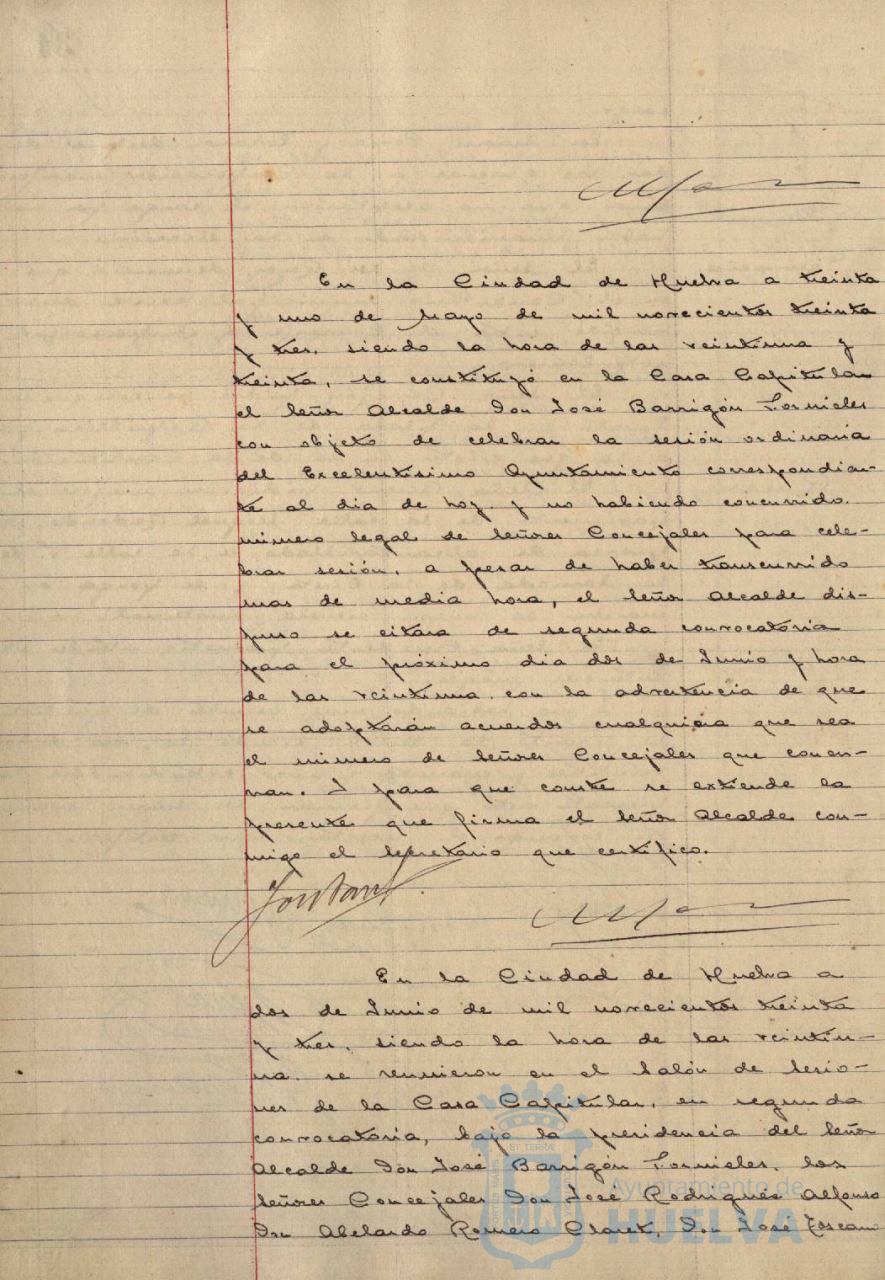 En la Ciudad de Huelva a treinta
y uno de Mayo de mil novecientos treinta
y tres, siendo la hora de las veintiuna y
treinta, se constituyó en la Casa Capitular
el Señor Alcalde Don José Barrigón Fornieles
con objeto de celebrar la sesión ordinaria
del Excelentísimo Ayuntamiento correspondien-
te al dia de hoy, y no habiendo concurrido
número legal de Señores Concejales para cele-
brar sesión, a pesar de haber transcurrido
mas de media hora, el Señor Alcalde dis-
puso se citára de segunda convocatoria
para el próximo dia dos de Junio y hora
de las veintiuna con la advertencia de que
se adoptarán acuerdos cualquiera que sea
el número de Señores Concejales que concu-
rran. Y para que conste se extiende la
presente que firma el Señor Alcalde con-
migo el Secretario que certifico.
En la Ciudad de Huelva a
dos de Junio de mil novecientos treinta
y tres, siendo la hora de las veintiu-
na, se reunieron en el Salón de Sesio-
nes de la Casa Capitular, en segunda
convocatoria, bajo la presidencia del Señor
Alcalde Don José Barrigón Fornieles, los
Señores Concejales Don José Rodríguez Alfonso
Don Abelardo Romero Claret, Don José Toscano
Ayuntamiento de
HUELVA